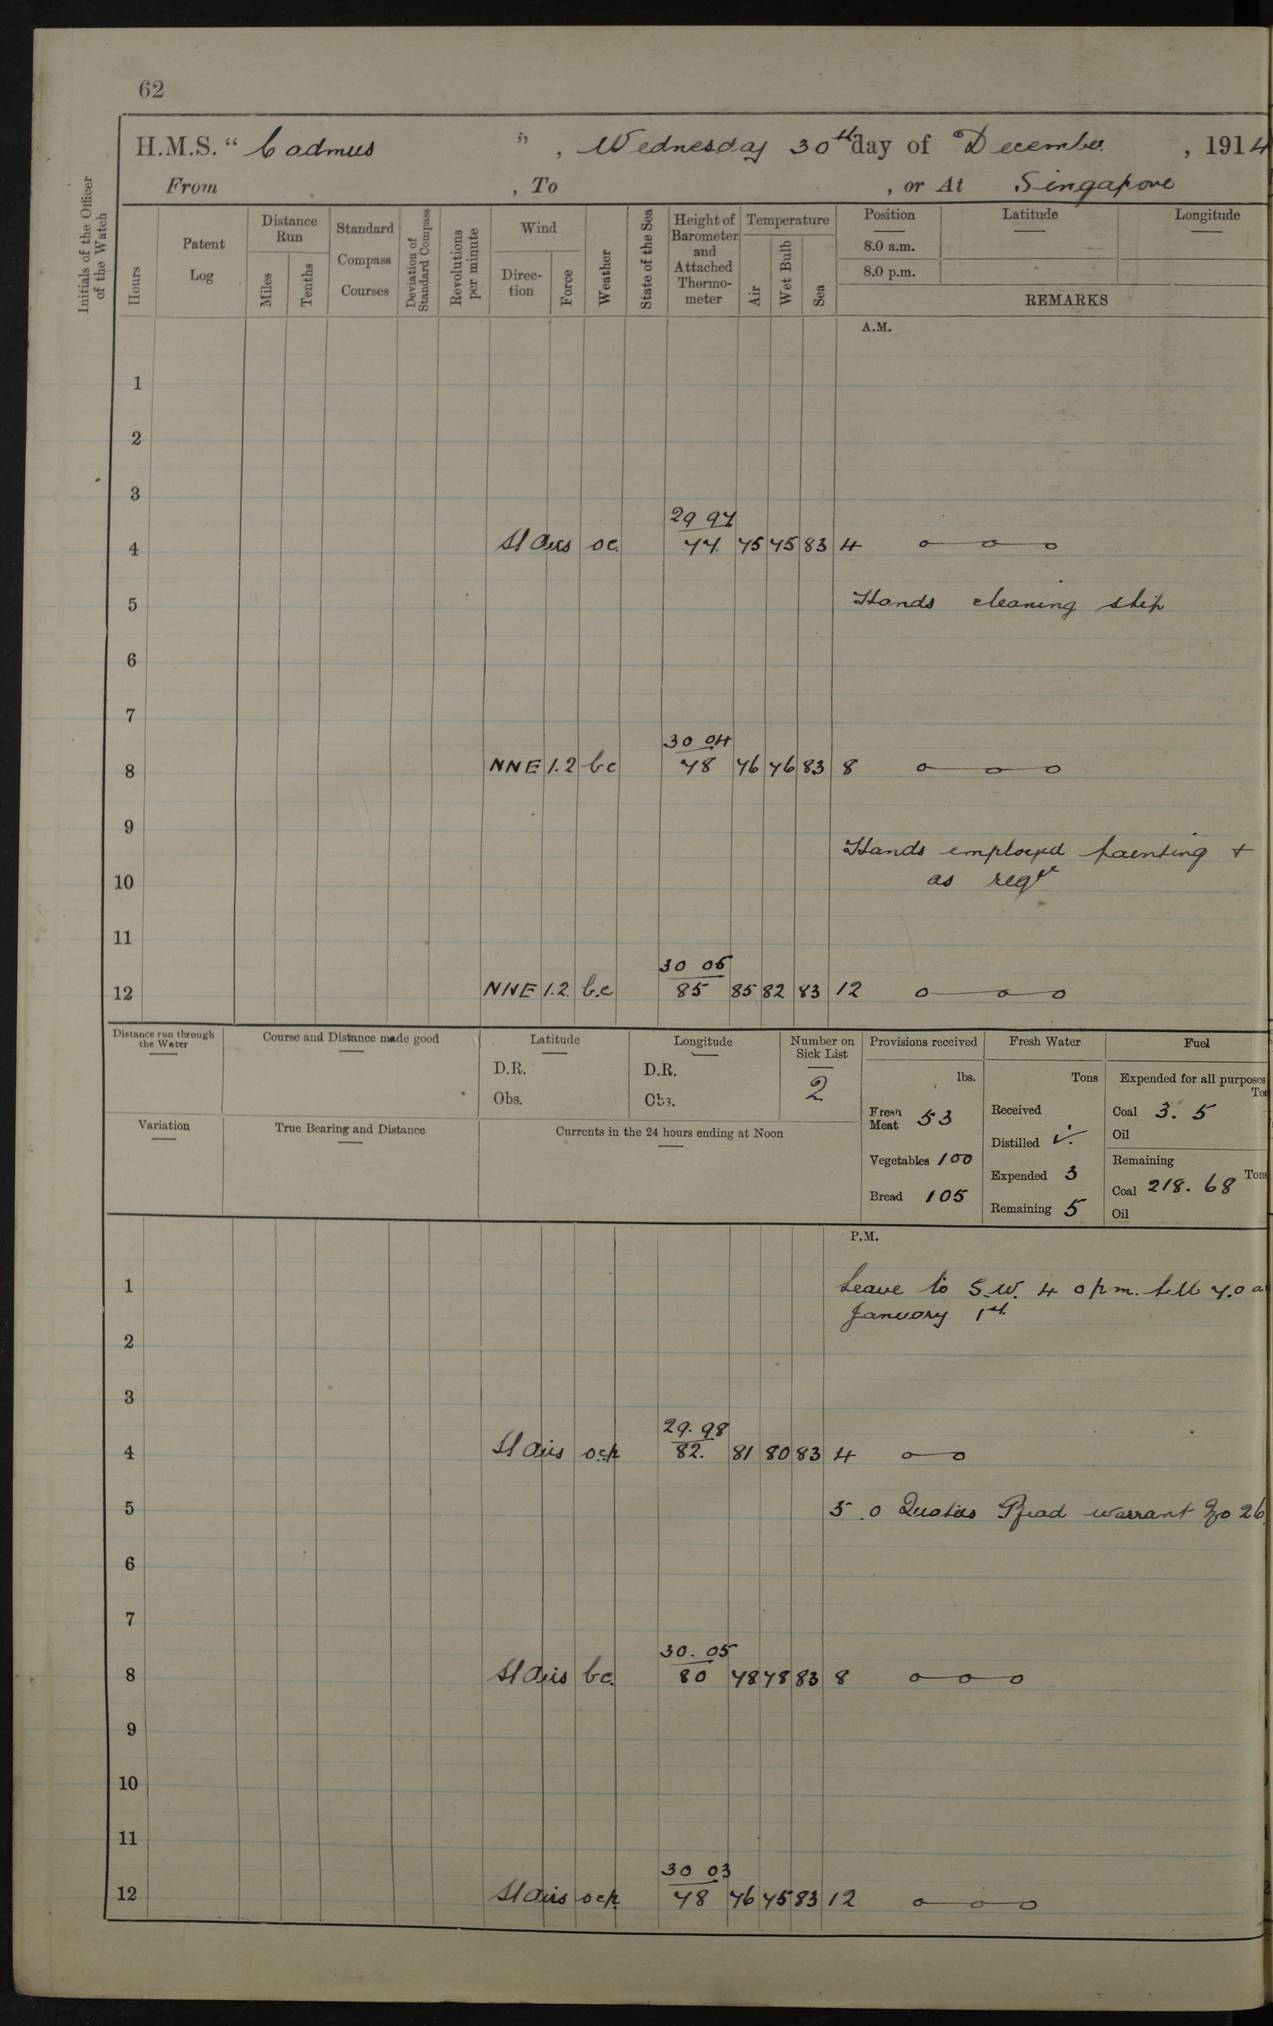 62
H.M.S. “ Cadmus ” , Wednesday 30th day of December , 1914
From , To , or At Singapore
Initials of the Officer of the Watch
Hours
Patent Log
Distance Run
Miles
Tenths
Standard Compass Courses
Deviation of Standard Compass
Revolutions per minute
Wind
Direc-tion
Force
Weather
State of the Sea
Height of Barometer and Attached Thermo-meter
Temperature
Air
Wet Bulb
Sea
Position Latitude Longitude
8.0 a.m.
8.0 p.m.
REMARKS
A.M.
1
2
3
29 97
4 Sl Airs oc. 77. 75 75 83 4
5 Hands cleaning ship
6
7
30 04
8 NNE 1.2 bc 78 76 76 83 8
9
Hands employed painting +
10 as reqd
11
30 06
12 NNE 1.2 b.c 85 85 82 83 12
Distance run through the Water
Course and Distance made good
Latitude
D.R.
Obs.
Longitude
D.R.
Obs.
Number on Sick List
2
Provisions received
lbs.
Fresh Meat 53
Vegetables 100
Bread 105
Fresh Water
Tons
Received
Distilled
Expended 3
Remaining 5
Fuel
Expended for all purposes
Coal 3. 5
Oil
Remaining Tons
Coal 218. 68
Oil
Variation
True Bearing and Distance
Currents in the 24 hours ending at Noon
P.M.
1 Leave to S.W. 4 0 p.m. till 7.0 a
January 1st
2
3
29. 98
4 Sl Airs ocp 82. 81 80 83 4
5 5.0 Quarters Read warrant No 26
6
7
30. 05
8 Sl Airs bc. 80 78 78 83 8
9
10
11
30 03
12 Sl Airs ocp. 78 76 75 83 12